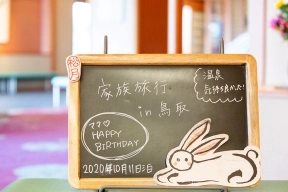 家族旅行
in 鳥取
温泉
気持ち良かった!
HAPPY
BIRTHDAY
2020年10月11日泊